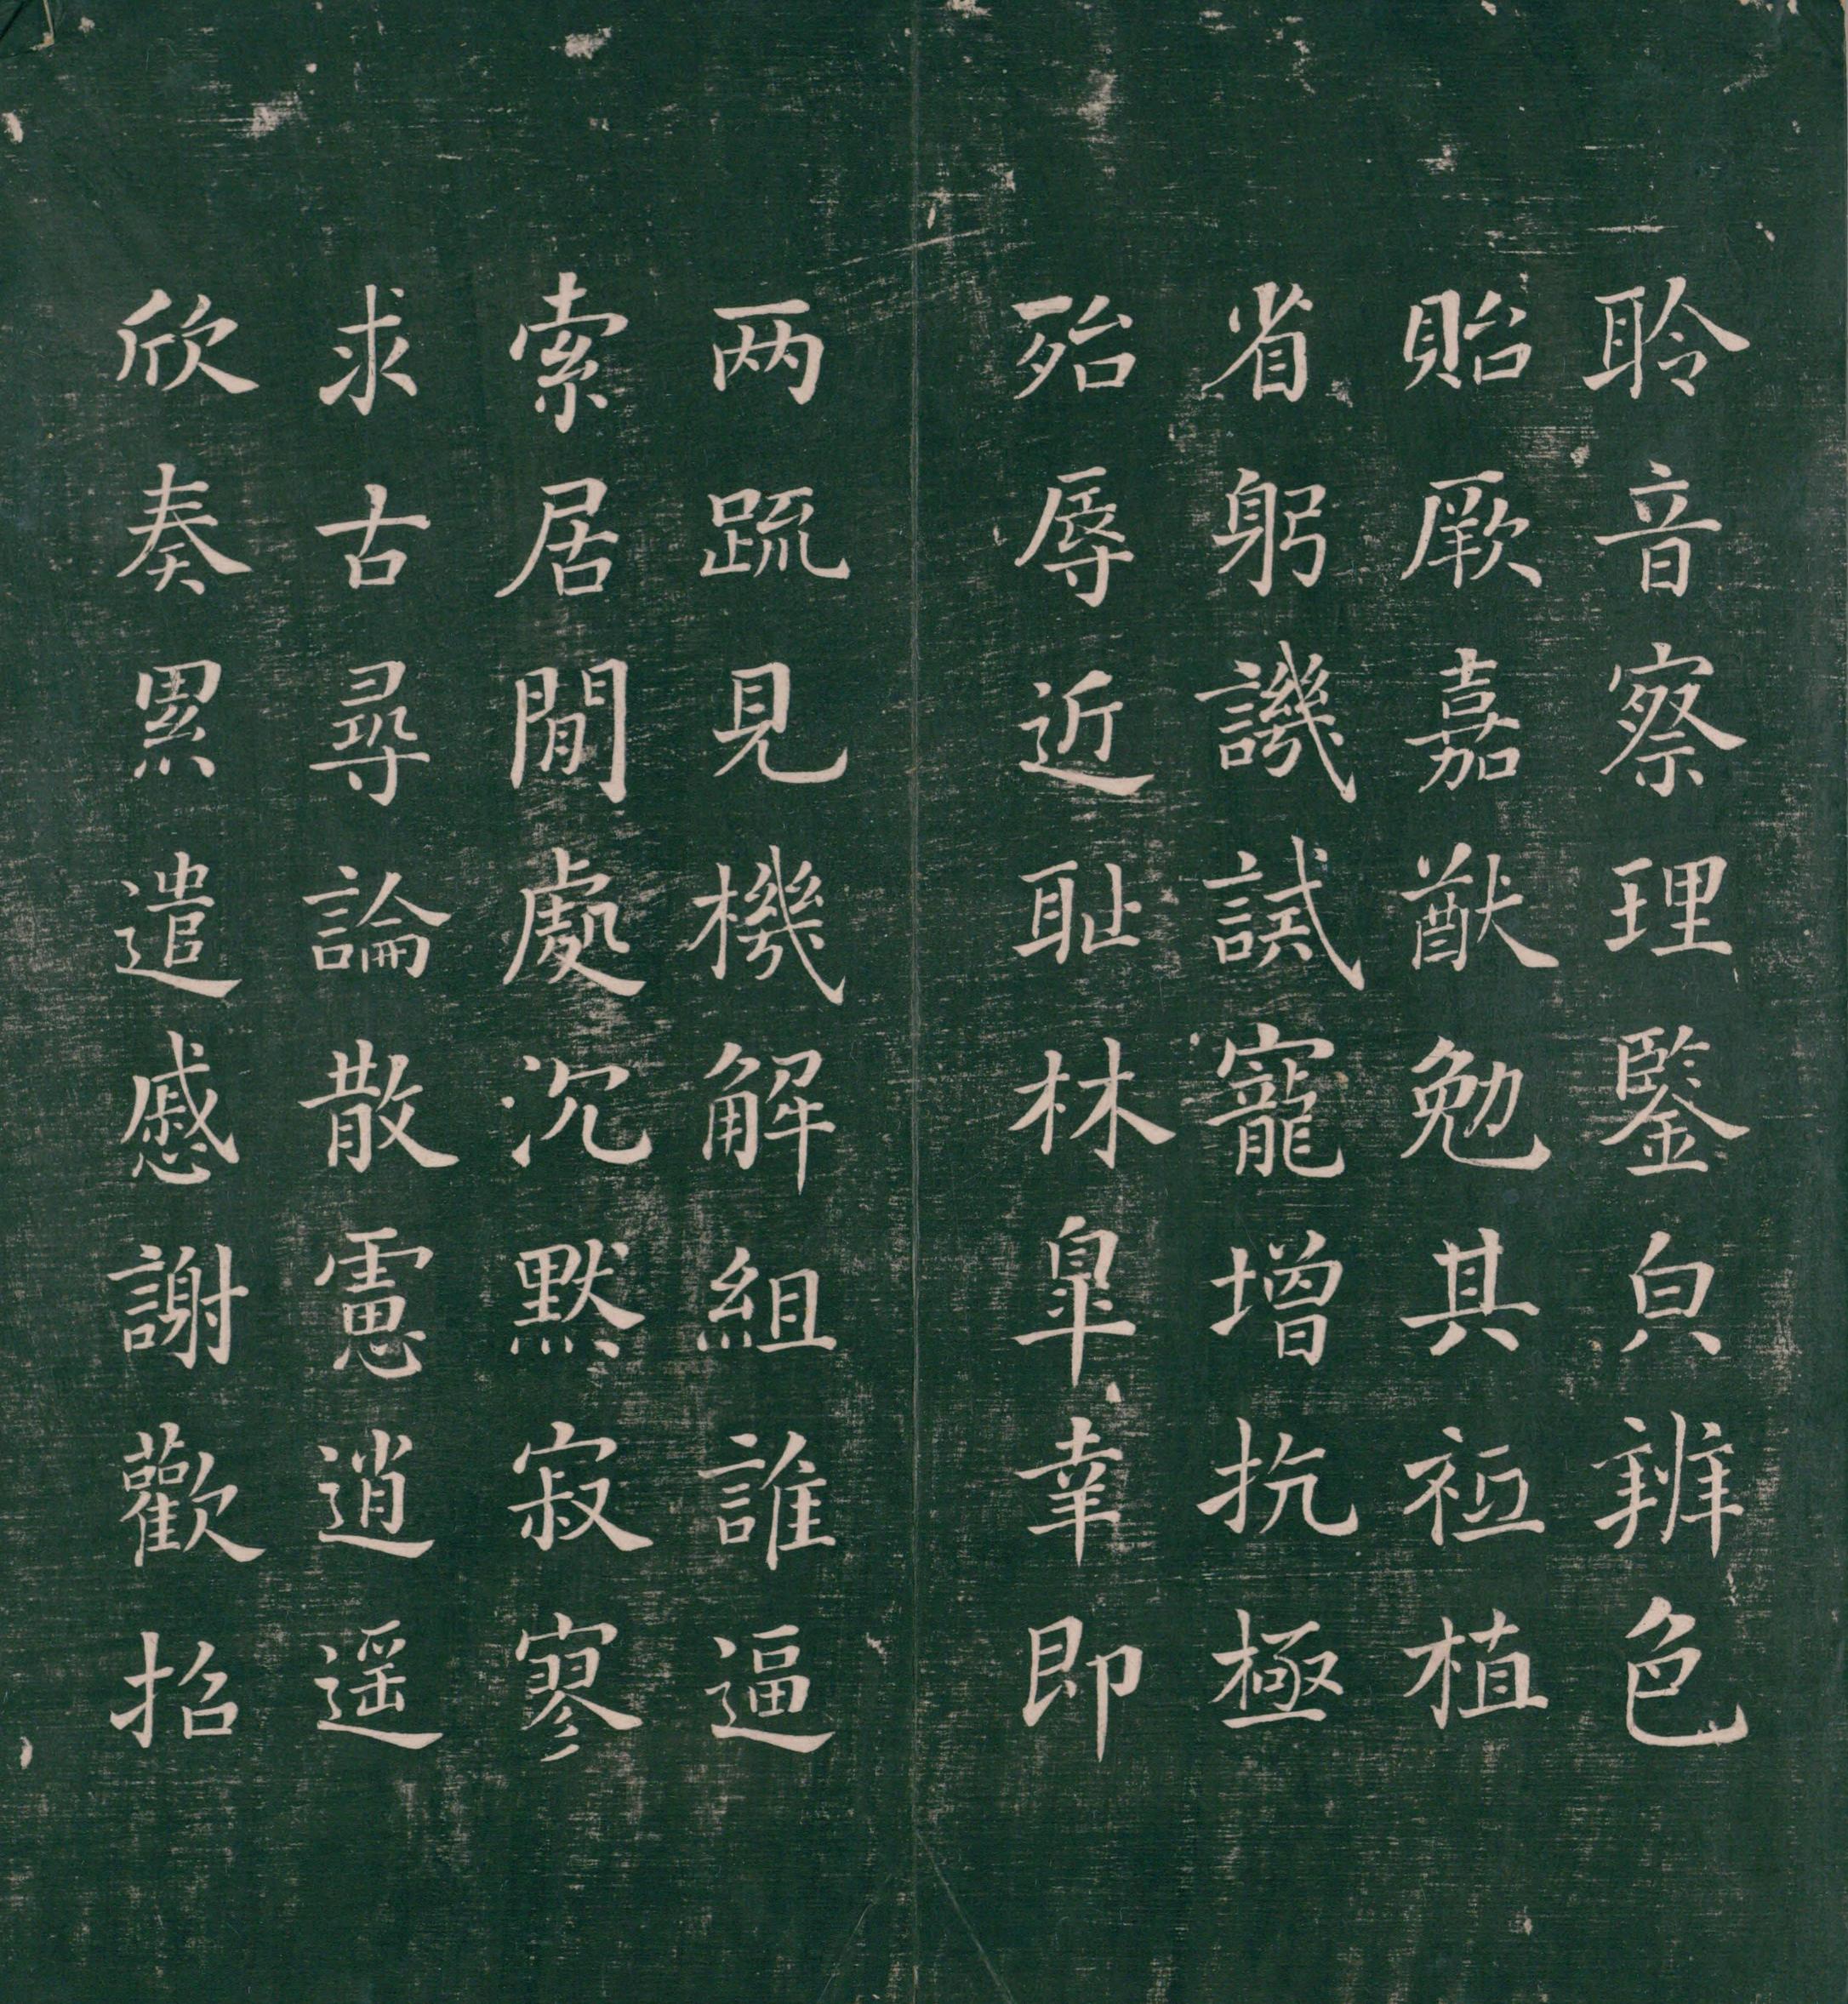 聆音察理鑒皃辨色
貽厥嘉猷勉其祗植
省躬譏誡寵增抗極
殆辱近耻林皐幸即
两疏見機解組誰逼
索居閒處沉默寂寥
求古尋論散慮逍遥
欣奏累遣慼謝歡招